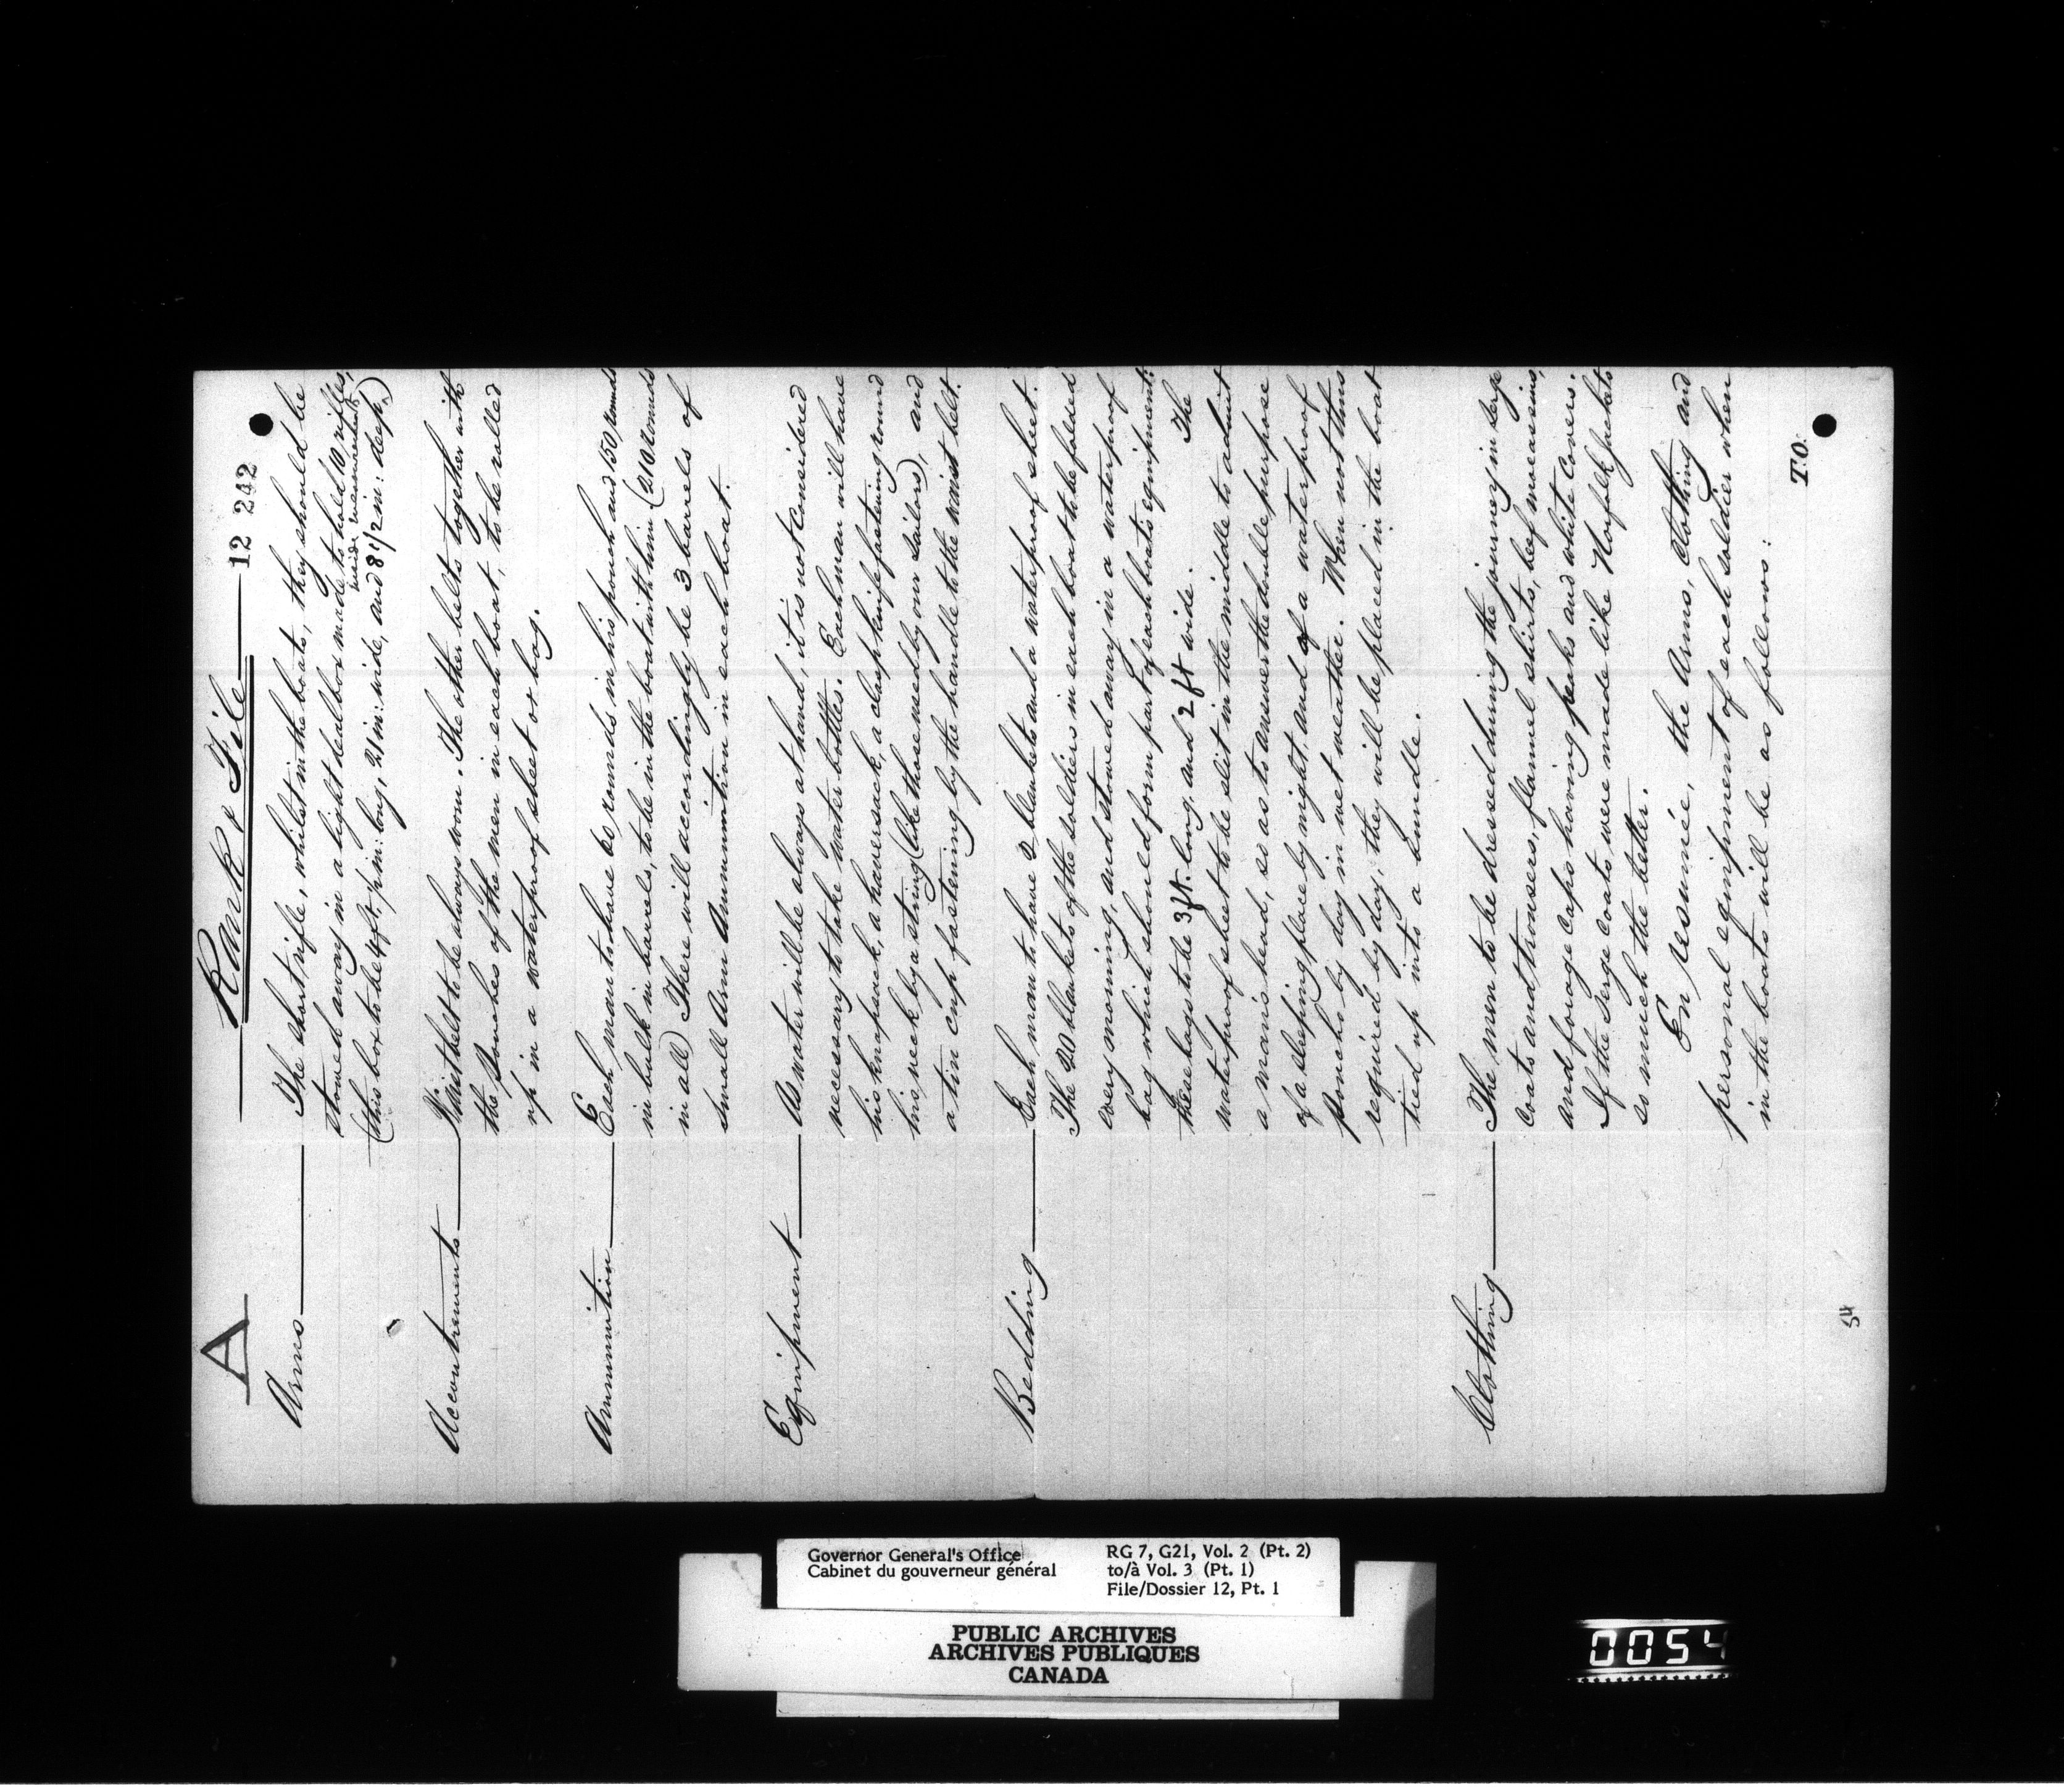 A
Rank & File
12 242
Arms — The short rifle, whilst in the boats, they should be
stowed away in a light deal box made to hold 10 rifles,
inside measurement
(this box to be 4 ft, 1/2 in: long, 21 in: wide, and 8 1/2 in: deep,)
Accoutrements — Waistbelt to be always worn. The other belts together with
the Pouches of the men in each boat, to be rolled
up in a waterproof sheet or bag.
Ammunition — Each man to have 60 rounds in his pouch and 150 rounds
in bulk in barrels, to be in the boat with him (210 rounds
in all) There will accordingly be 3 barrels of
Small Arm Ammunition in each boat.
Equipment — As water will be always at hand, it is not considered
necessary to take water bottles. Each man will have
his knapsack, a haversack, a clasp knife fastening round
his neck by a string (like those used by our sailors), and
a tin cup fastening by the handle to the waist belt.
Bedding — Each man to have 2 blankets and a waterproof sheet.
The 20 blankets of the soldiers in each boat to be folded
every morning, and stowed away in a waterproof
bag which should form part of each boat's equipment:
these bags to be 3 ft. long, and 2 ft wide. The
waterproof sheet to be slit in the middle to admit
a man's head, so as to answer the double purpose
of a sleeping place by night, and of a waterproof
poncho by day in wet weather. When not thus
required by day, they will be placed in the boat
tied up into a bundle.
Clothing — The men to be dressed during the journey in serge
coats and trousers, flannel shirts, beef moccasins,
and forage caps having peaks and white covers.
If the serge coats were made like Norfolk jackets
so much the better.
En resumée, the Arms, Clothing and
personal equipment of each soldier when
in the boats will be as follows:
T.O.
54
Governor General's Office
Cabinet du gouverneur général
RG 7, G21, Vol. 2 (Pt. 2)
to/à Vol. 3 (Pt. 1)
File/Dossier 12, Pt. 1
PUBLIC ARCHIVES
ARCHIVES PUBLIQUES
CANADA
0054